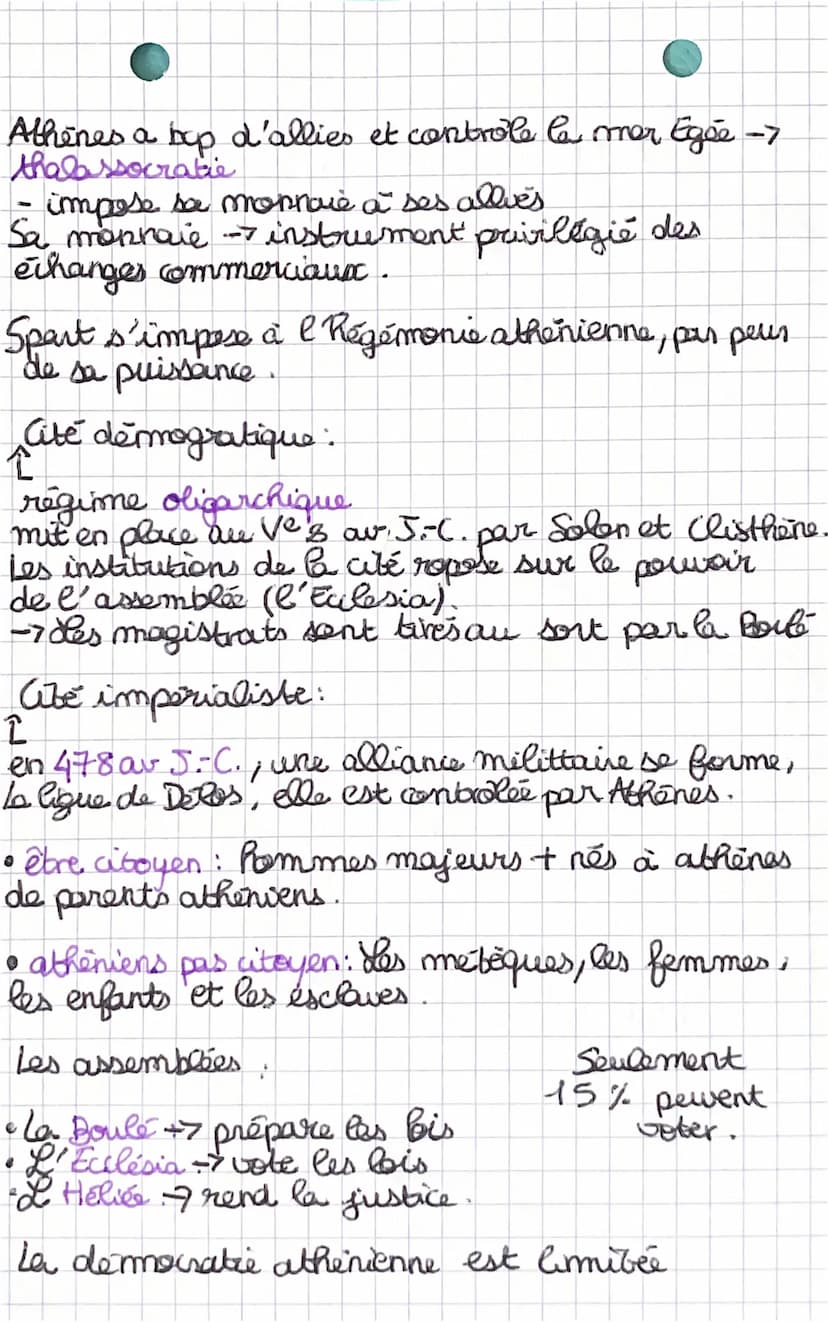 Athènes a bcp d'allies et contrôle la mer Egée →
thalassocratie
- impose sa monnaie à ses alliés
Sa monnaie → instrument privilégié des
échanges commerciaux.
Spart s'impose à l'hégémonie athénienne, par peur
de sa puissance.
Cité démogratique :
régime oligarchique
mit en place au Ve s av. J.-C. par Solon et Clisthène.
Les institutions de la cité ropose sur le pouvoir
de l'assemblée (l'Ecclesia).
→ des magistrats sont tirés au sort par la Boulé
Cité impérialiste :
en 478 av J.-C., une alliance milittaire se forme,
la ligue de Délos, elle est contrôlée par Athènes.
• être citoyen : hommes majeurs + nés à athènes
de parents athéniens.
• athéniens pas citoyen : Les métèques, les femmes,
les enfants et les esclaves.
Les assemblées :
Seulement
15 % peuvent
voter.
• La Boulé → prépare les lois
• L'Ecclésia → vote les lois
• L'Héliée → rend la justice.
La démocratie athénienne est limitée